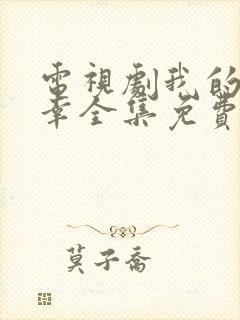 電視劇我的
幸全集免費
莫子喬